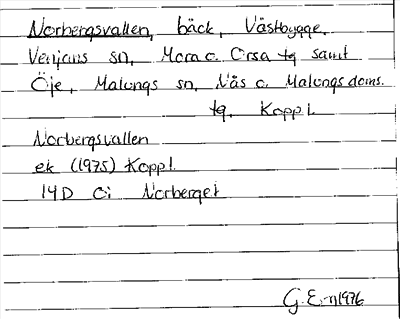 Norbergsvallen, bäck, Västbygge,
Venjans sn, Mora o. Orsa tg samt
Öje, Malungs sn, Nås o. Malungs doms.
tg, Koppl.
Norbergsvallen
ek (1975) Koppl.
14D Ci Norberget
G. E-n 1976